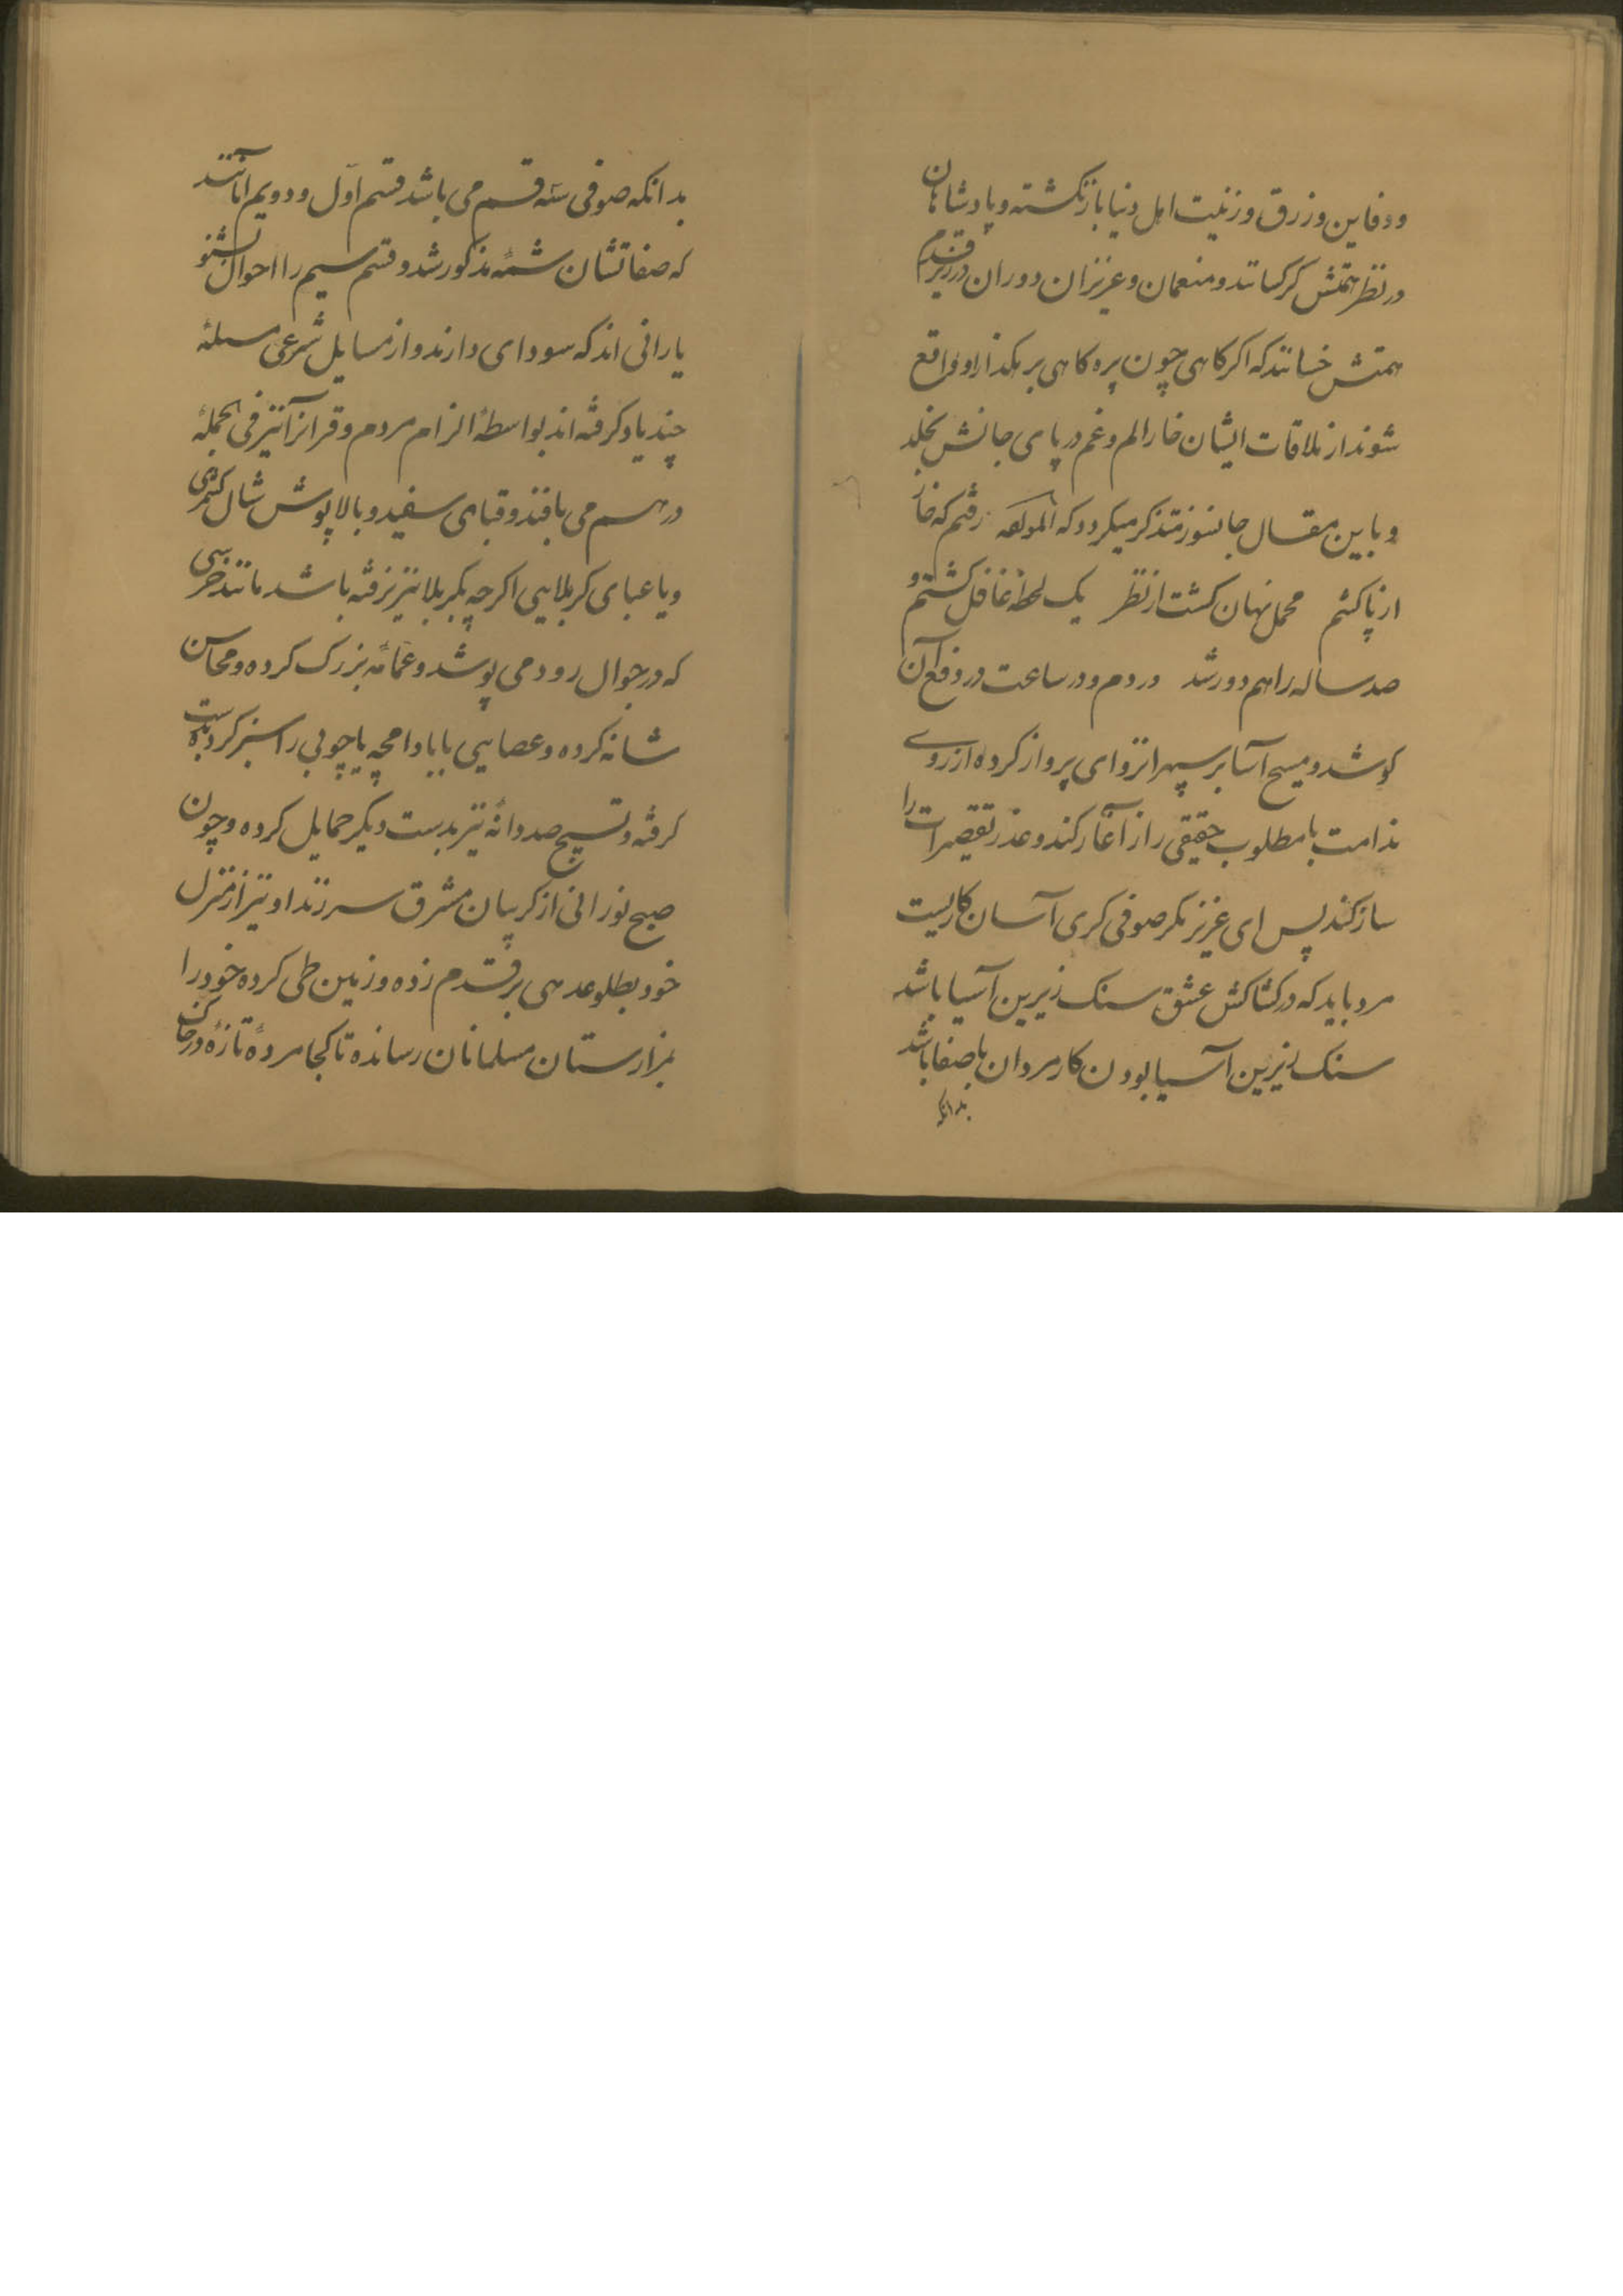 ودفاین وزرق وزینت اهل دنیا بازنکشته وپادشاهان
درنظر همتش کرکسانند ومنعمان وعزیزان دوران درزیر قدم
همتش خسانند که اکر کاهی چون پره کاهی بر بکذار او واقع
شوند از ملاقات ایشان خار الم وغم در پای جانش بخلد
وباین مقال جانسوز متذکر میکردد که لمولفه رفتم که خار
از پا کشم محمل نهان کشت از نظر یک لحظه غافل کشتم و
صد ساله راهم دور شد در دم ودر ساعت در دفع آن
کوشد ومسیح آسا بر سپهر انزوای پرواز کرده از روی
ندامت با مطلوب حقیقی راز آغاز کند وعذر تقصیرات را
ساز کند پس ای عزیز مکر صوفی کری آسان کاریست
مرد باید که در کشاکش عشق سنک زیرین آسیا باشد
سنک زیرین آسیا بودن کار مردان با صفا باشد
بدانکه
بدانکه صوفی سه قسم می باشد قسم اول ودویم آنانند
که صفاتشان شمه مذکور شد وقسم سیم را احوال بشنو
یارانی اند که سودای دارند واز مسایل شرعی مسله
چند یاد کرفته اند بواسطۀ الزام مردم وقرانرا نیز فی الجملۀ
درهم می بافند وقبای سفید وبالاپوش شال کشمیری
ویا عبای کربلایی اکرچه بکربلا نیز نرفته باشد مانند خرسی
که در جوال رود می پوشد وعمامۀ بزرک کرده ومحاسن
شانه کرده وعصایی یا بادامچه یا چوبی را سبز کرده بدست
کرفته وتسبیح صد دانۀ نیز بدست دیکر حمایل کرده وچون
صبح نورانی از کریبان مشرق سر زند او نیز از منزل
خود بطلوعدهی بر قدم زده وزمین طی کرده خود را
بمزارستان مسلمانان رسانده تا کجا مردۀ تازۀ در خاک